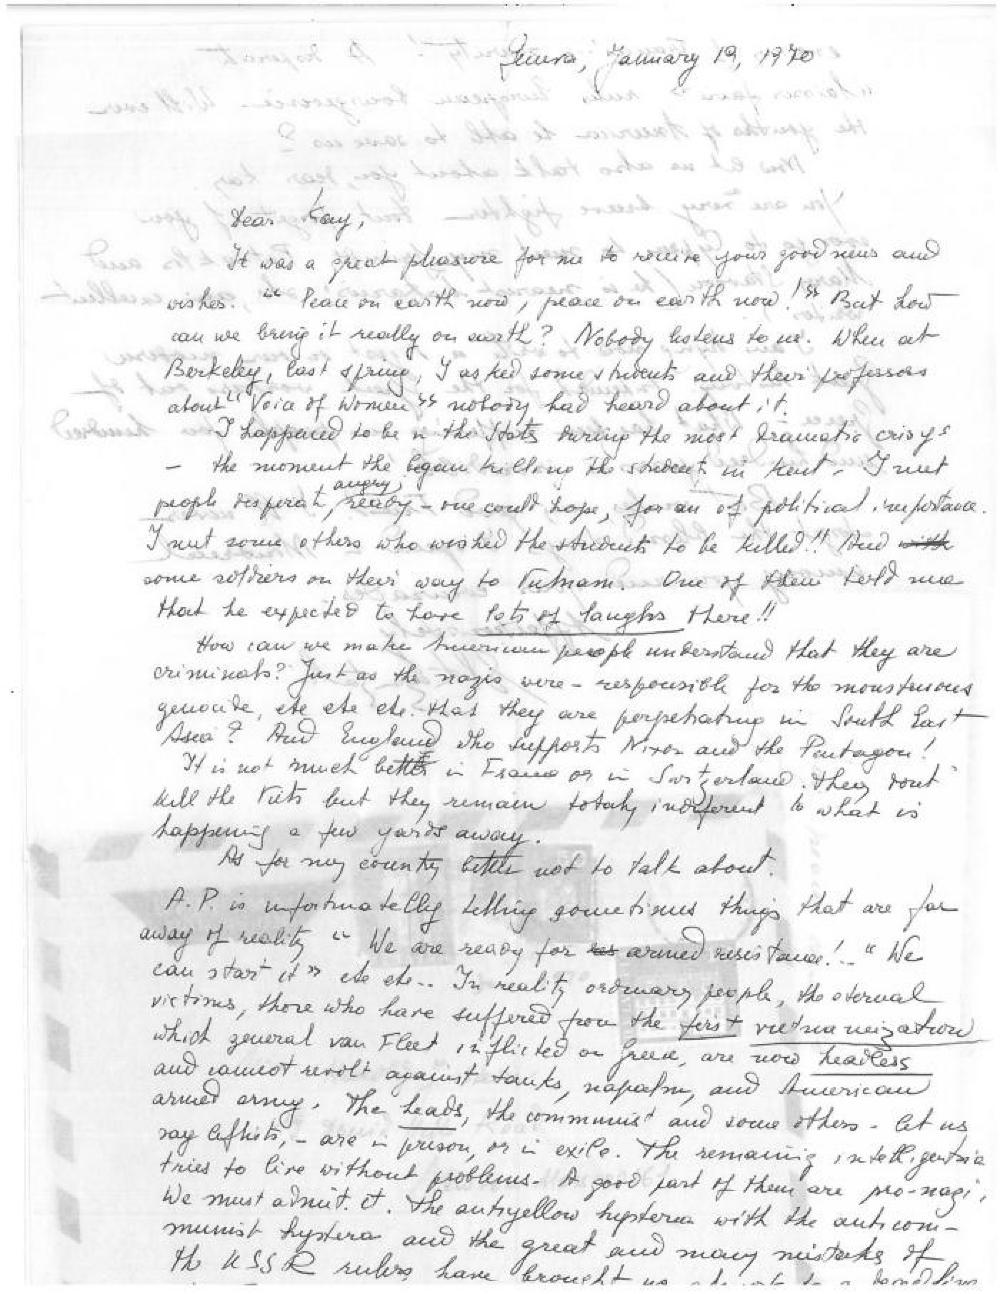 Geneva, January 19, 1970
Dear Kay,
It was a great pleasure for me to receive your good news and
wishes. " Peace on earth now, peace on earth now!" But how
can we bring it really on earth? Nobody listens to us. When at
Berkeley, last spring, I asked some students and their professors
about "Voice of Women" nobody had heard about it.
I happened to be in the States during the most dramatic crisys
- the moment the began killing the students in Kent. I met
people desperat, angry, ready - one could hope, for an of political importance.
I met some others who wished the students to be killed!! And with
some soldiers on their way to Vietnam. One of them told me
that he expected to have lots of laughs there!!
How can we make American people understand that they are
criminals? Just as the nazis were - responsible for the monstruous
genocide, etc etc etc. that they are perpetrating in South East
Asia? And England who supports Nixon and the Pentagon!
It is not much better in France or in Switzerland. They dont
kill the Viets but they remain totaly indiferent to what is
happening a few yards away.
As for my country better not to talk about.
A.P. is unfortunatelly telling sometimes things that are far
away of reality " We are ready for armed resistance!.. " We
can start it " etc etc... In reality ordinary people, the eternal
victims, those who have suffered from the first vietnameization
which general van Fleet inflicted on Greece, are now headless
and cannot revolt against tanks, napalm, and American
armed army. The heads, the communist and some others - let us
say leftists, - are in prison, or in exile. The remaining intelligentsia
tries to live without problems. A good part of them are pro-nazi,
We must admit it. The antiyellow hysteria with the anticom-
munist hysteria and the great and many mistakes of
the USSR rulers have brought us